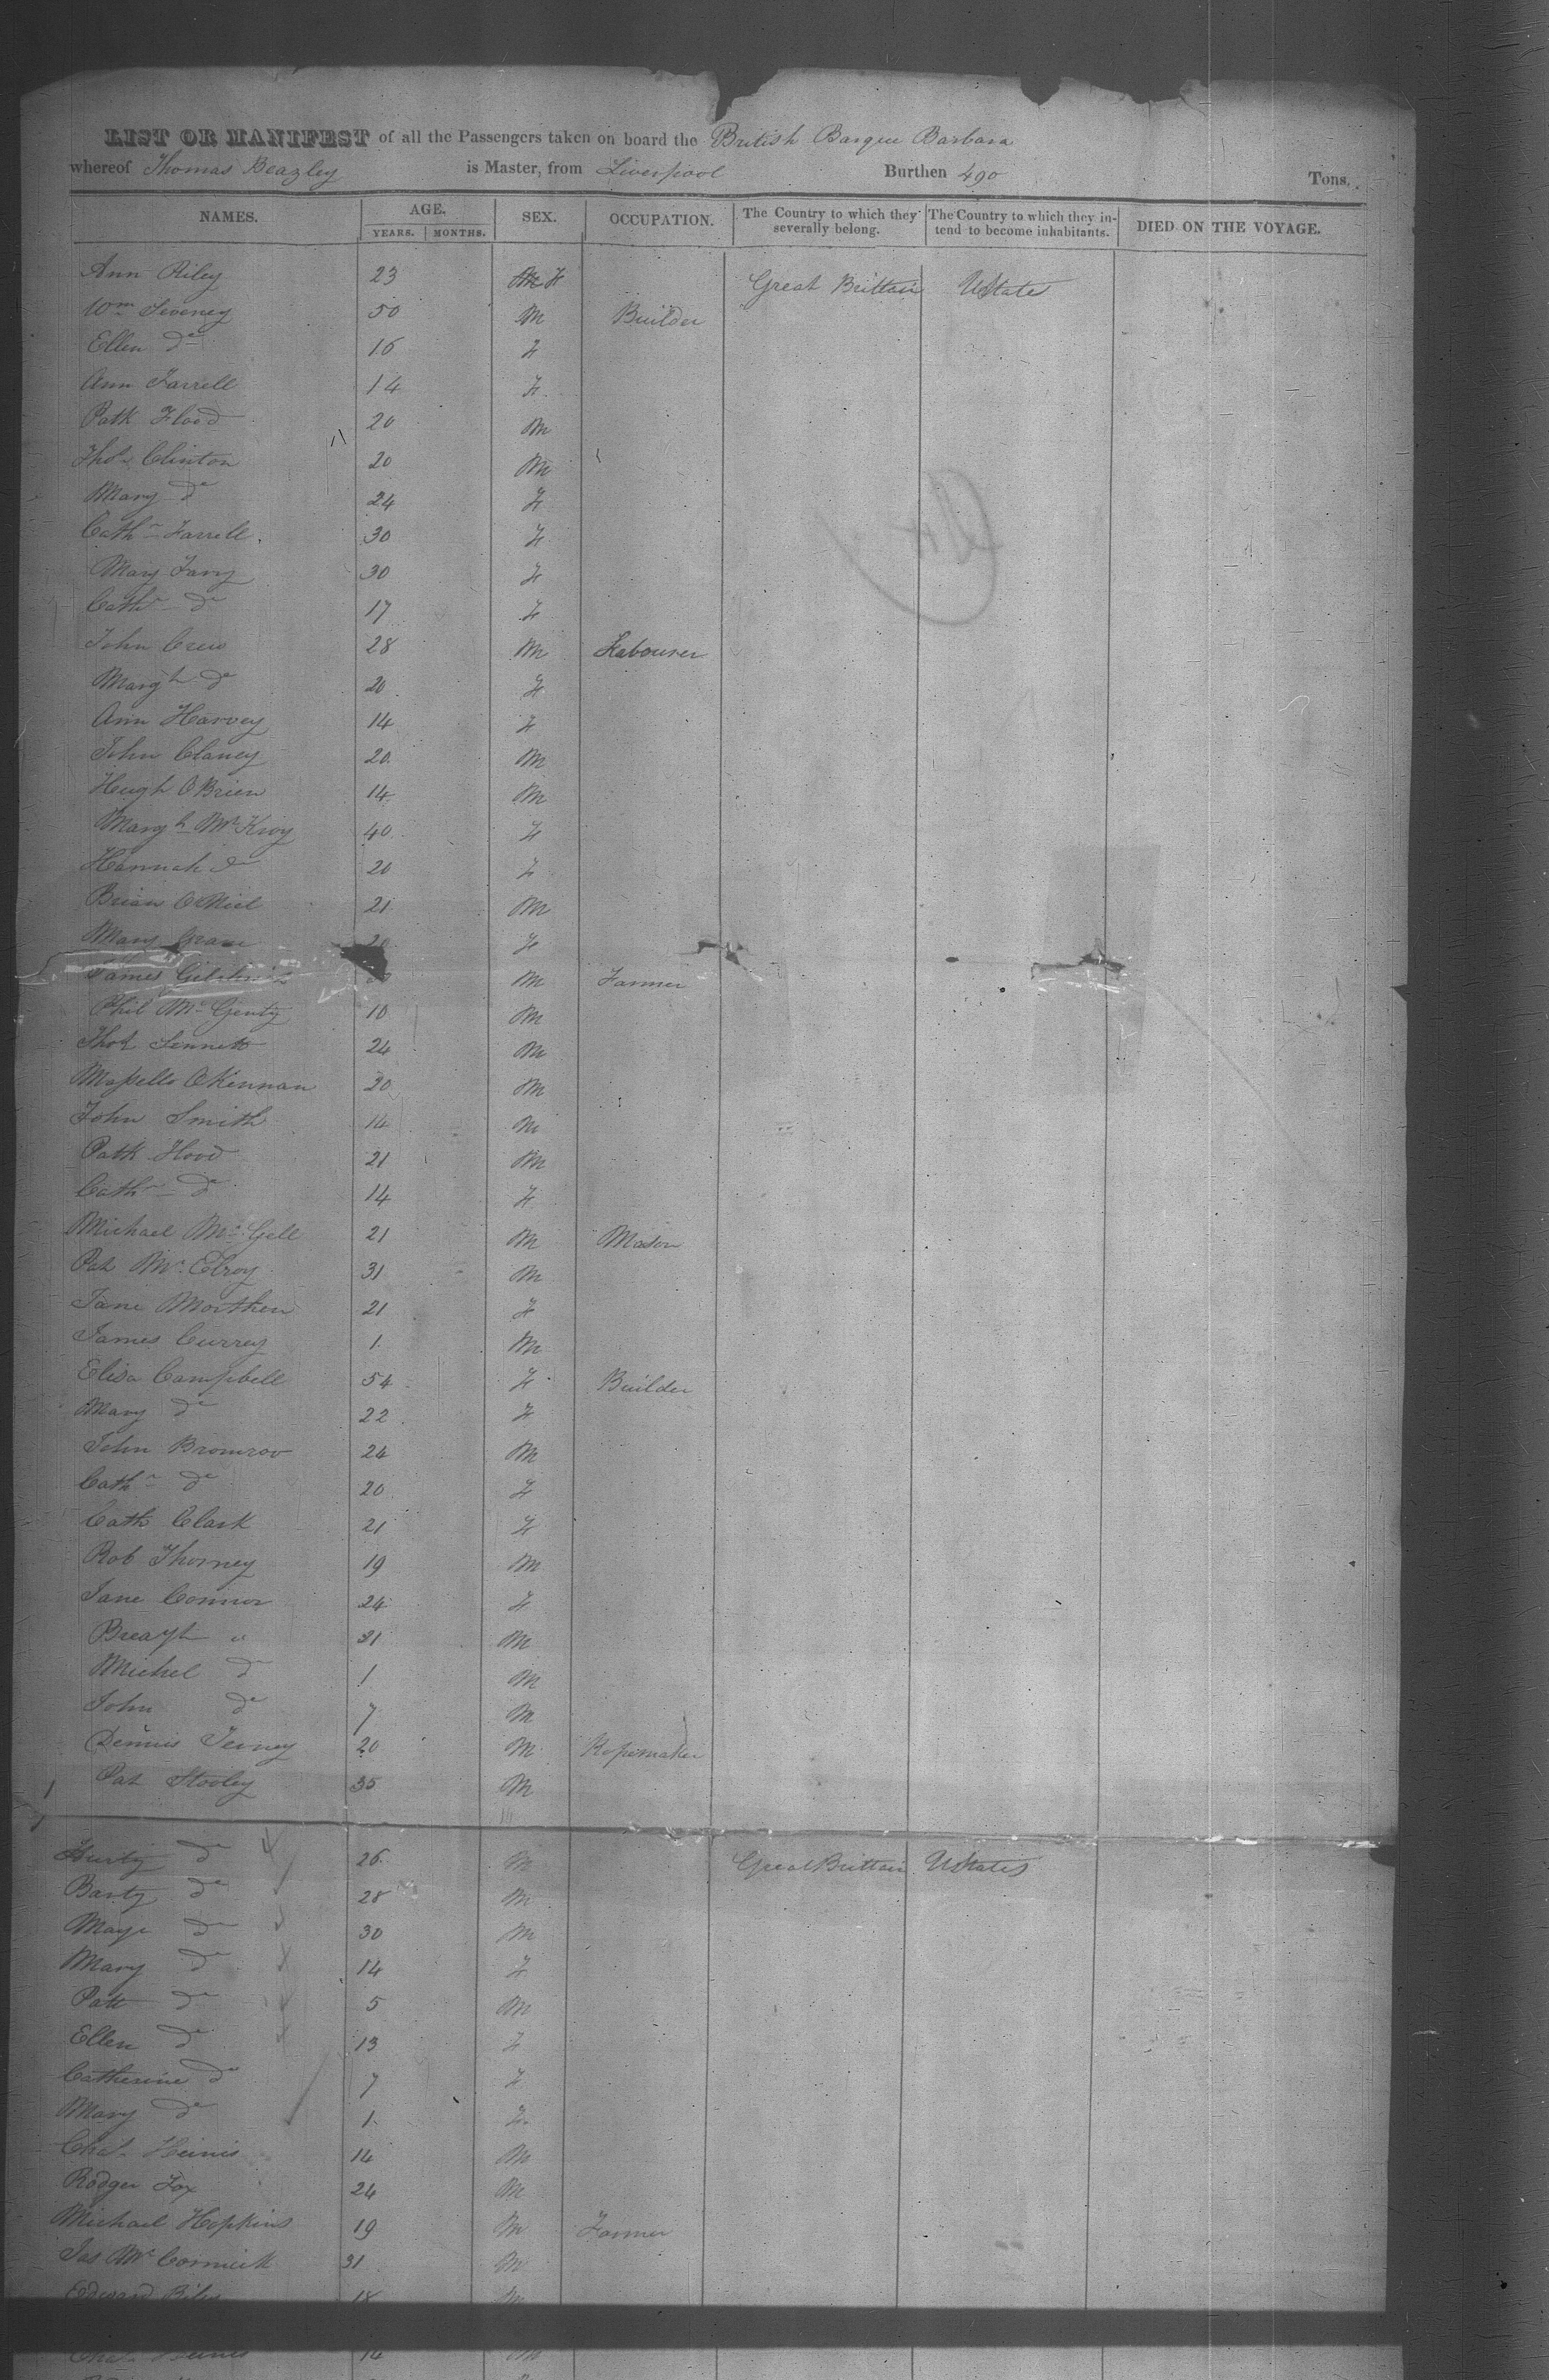 LIST OR MANIFEST of all the Passengers taken on board the British Barque Barbara
whereof Thomas Beazley is Master, from Liverpool Burthen 490 Tons.
NAMES. AGE. SEX. OCCUPATION. The Country to which they severally belong. The Country to which they intend to become inhabitants. DIED ON THE VOYAGE.
YEARS. MONTHS.
Ann Riley 23 F Great Brittain UStates
Wm 50 M Builder
Ellen do 16 F
Ann Farrell 14 F
Patk Flood 20 M
Thos Clinton 20 M
Mary do 24 F
Cathn Farrell 30 F
Mary 30 F
Cathn do 17 F
John Crew 28 M Labourer
Margt do 20 F
Ann Harvey 14 F
John Clancy 20 M
Hugh OBrien 14 M
Margt 40 F
Hannah do 20 F
Brian ONiel 21 M
Mary 20 F
James M Farmer
Phil Mc 10 M
Thos Sennett 24 M
OKennan 20 M
John Smith 14 M
Patk Hood 21 M
Cathn do 14 F
Michael Mc Gell 21 M Mason
Pat Mc Elroy 31 M
Jane 21 F
James Currey 1 M
Elisa Campbell 54 F Builder
Mary do 22 F
John 24 M
Cathn do 20 F
Cath Clark 21 F
Rob Thorney 19 M
Jane Connor 24 F
31 M
Michel do 1 M
John do 7 M
Dennis 20 M Ropemaker
Pat 35 M
do 26 M Great Brittain UStates
Barty do 28 M
do 30 M
Mary do 14 F
Patt do 5 M
Ellen do 13 F
Catherine do 7 F
Mary do 1 F
Chas 14 M
Rodger Fox 24 M
Michael Hopkins 19 M Farmer
Jas McCormick 31 M
Edward Riley 18 M
14 M